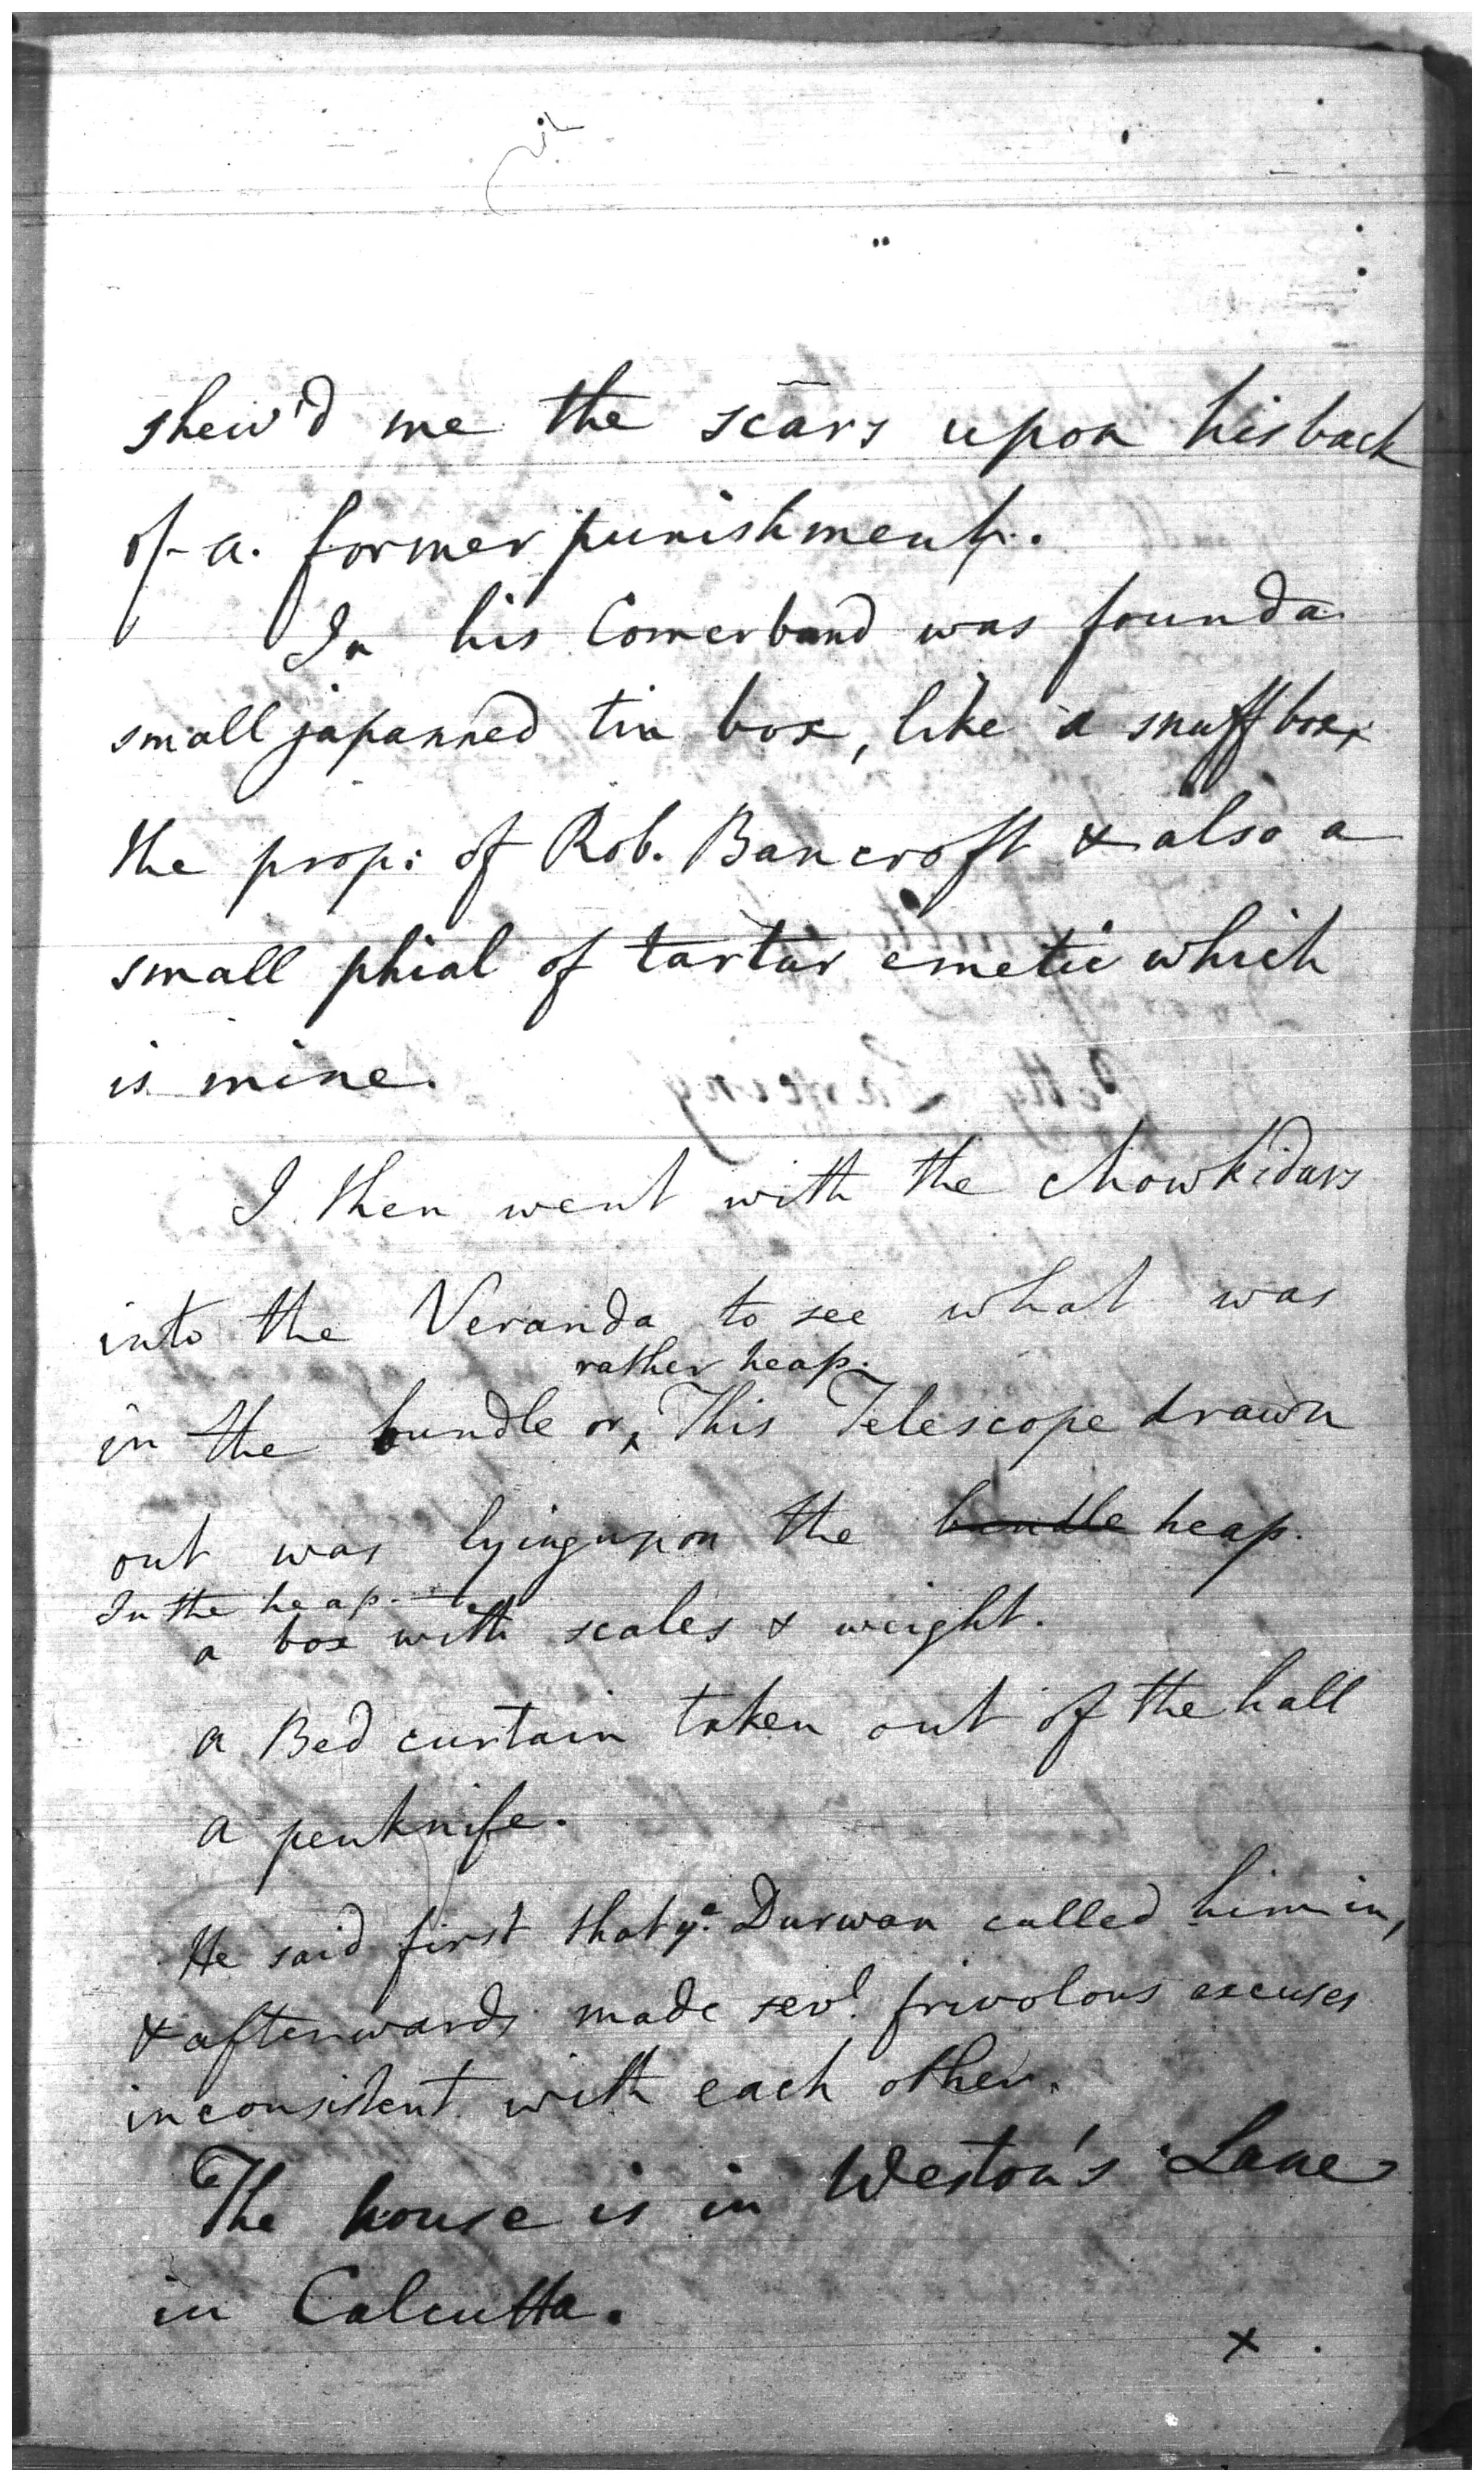 shew'd me the scars upon his back
of a former punishment.
In his Comerband was found a
small japanned tin box, like a snuff box,
the prop: of Rob. Bancroft & also a
small phial of tartar emetic which
is mine.
I then went with the chowkidars
into the Veranda to see what was
rather heap.
in the bundle or ‸ This Telescope drawn
out was lying upon the bundle heap.
In the heap.
a box with scales & weight.
a Bed curtain taken out of the hall
a penknife.
He said first that ye. Durwan called him in,
& afterwards made sevl. frivolous excuses
inconsistent with each other.
The house is in Weston's Lane
in Calcutta.
x